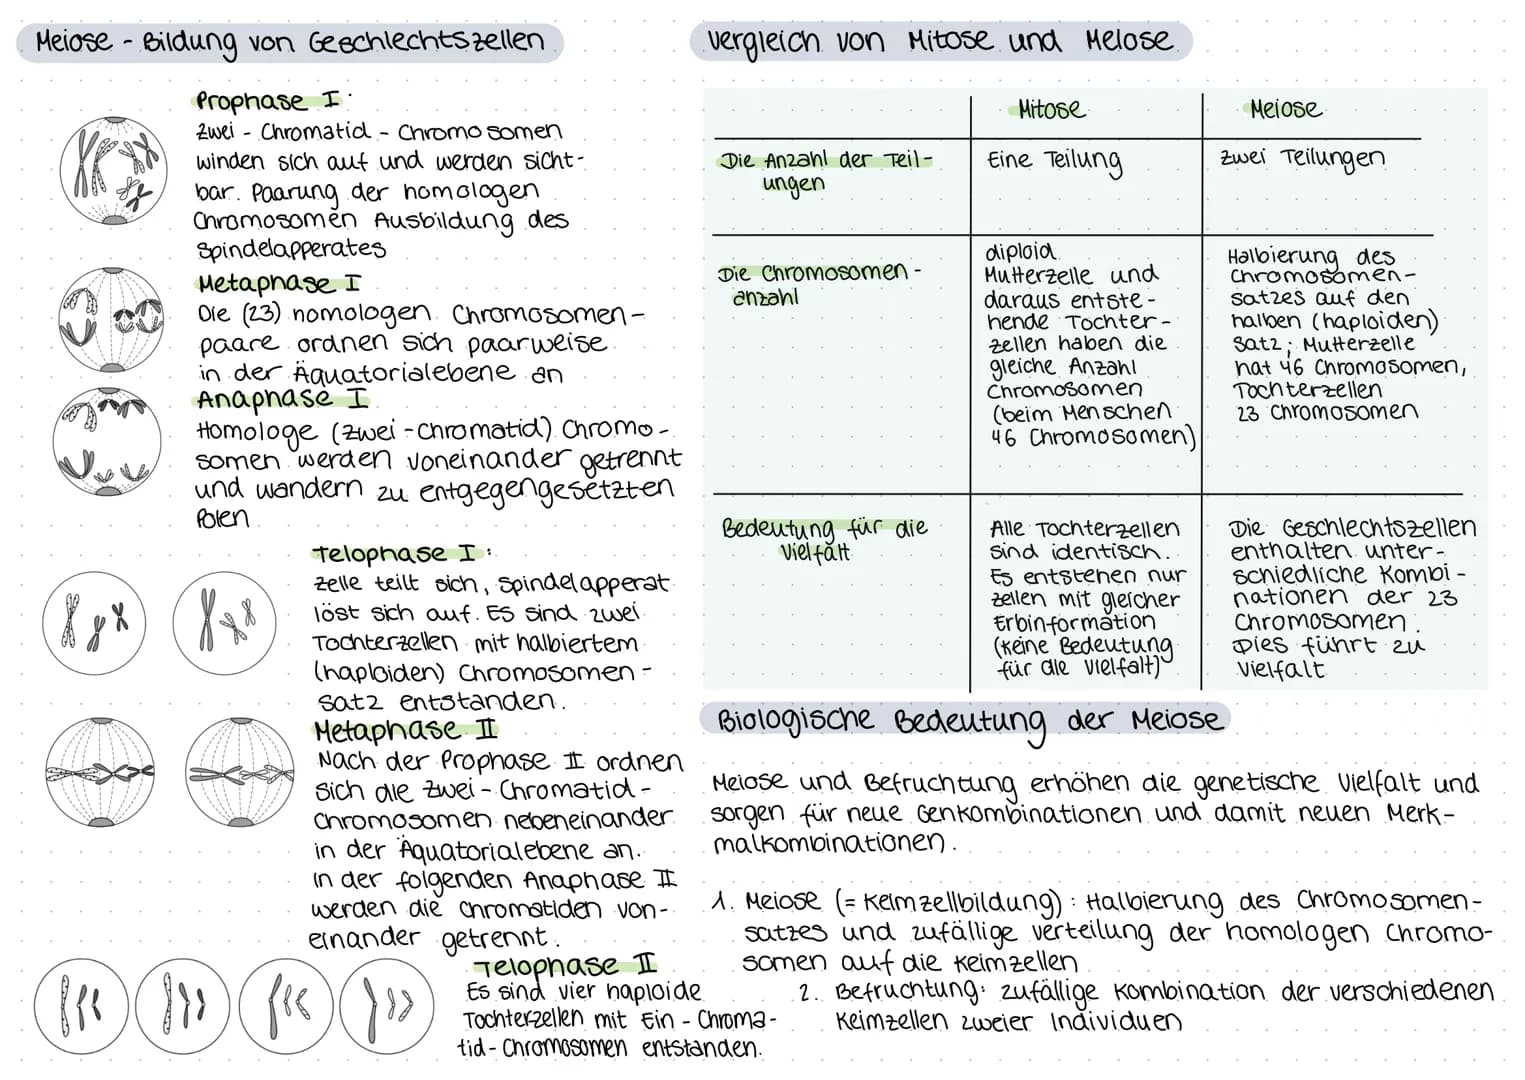 Meiose - Bildung von Geschlechtszellen
Prophase I
Zwei - Chromatid - Chromosomen
winden sich auf und werden sicht-
bar. Paarung der homologen
Chromosomen Ausbildung des
Spindelapperates
Metaphase I
Die (23) homologen Chromosomen-
paare ordnen sich paarweise
in der Äquatorialebene an
Anaphase I
Homologe (zwei-chromatid) Chromo-
somen werden voneinander getrennt
und wandern zu entgegengesetzten
Polen
Telophase I:
Zelle teilt sich, Spindelapperat
löst sich auf. Es sind zwei
Tochterzellen mit halbiertem
(haploiden) Chromosomen-
satz entstanden.
Metaphase II
Nach der Prophase II ordnen
sich die Zwei-Chromatid-
Chromosomen nebeneinander
in der Äquatorialebene an.
In der folgenden Anaphase II
werden die Chromatiden von-
einander getrennt.
Telophase II
Es sind vier haploide
Tochterzellen mit Ein-Chroma-
tid-Chromosomen entstanden.
Vergleich von Mitose und Meiose
Mitose
Meiose
Die Anzahl der Teil-
ungen
Eine Teilung
Zwei Teilungen
Die Chromosomen-
anzahl
diploid
Mutterzelle und
daraus entste-
hende Tochter-
zellen haben die
gleiche Anzahl
Chromosomen
(beim Menschen
46 Chromosomen)
Halbierung des
Chromosomen-
satzes auf den
halben (haploiden)
Satz; Mutterzelle
hat 46 Chromosomen,
Tochterzellen
23 Chromosomen
Bedeutung für die
Vielfalt
Alle Tochterzellen
sind identisch.
Es entstehen nur
Zellen mit gleicher
Erbinformation
(keine Bedeutung
für die Vielfalt)
Die Geschlechtszellen
enthalten unter-
schiedliche Kombi-
nationen der 23
Chromosomen.
Dies führt zu
Vielfalt
Biologische Bedeutung der Meiose
Meiose und Befruchtung erhöhen die genetische Vielfalt und
sorgen für neue Genkombinationen und damit neuen Merk-
malkombinationen.
1. Meiose (= Keimzellbildung): Halbierung des Chromosomen-
satzes und zufällige Verteilung der homologen Chromo-
somen auf die Keimzellen
2. Befruchtung: zufällige Kombination der verschiedenen
Keimzellen zweier Individuen